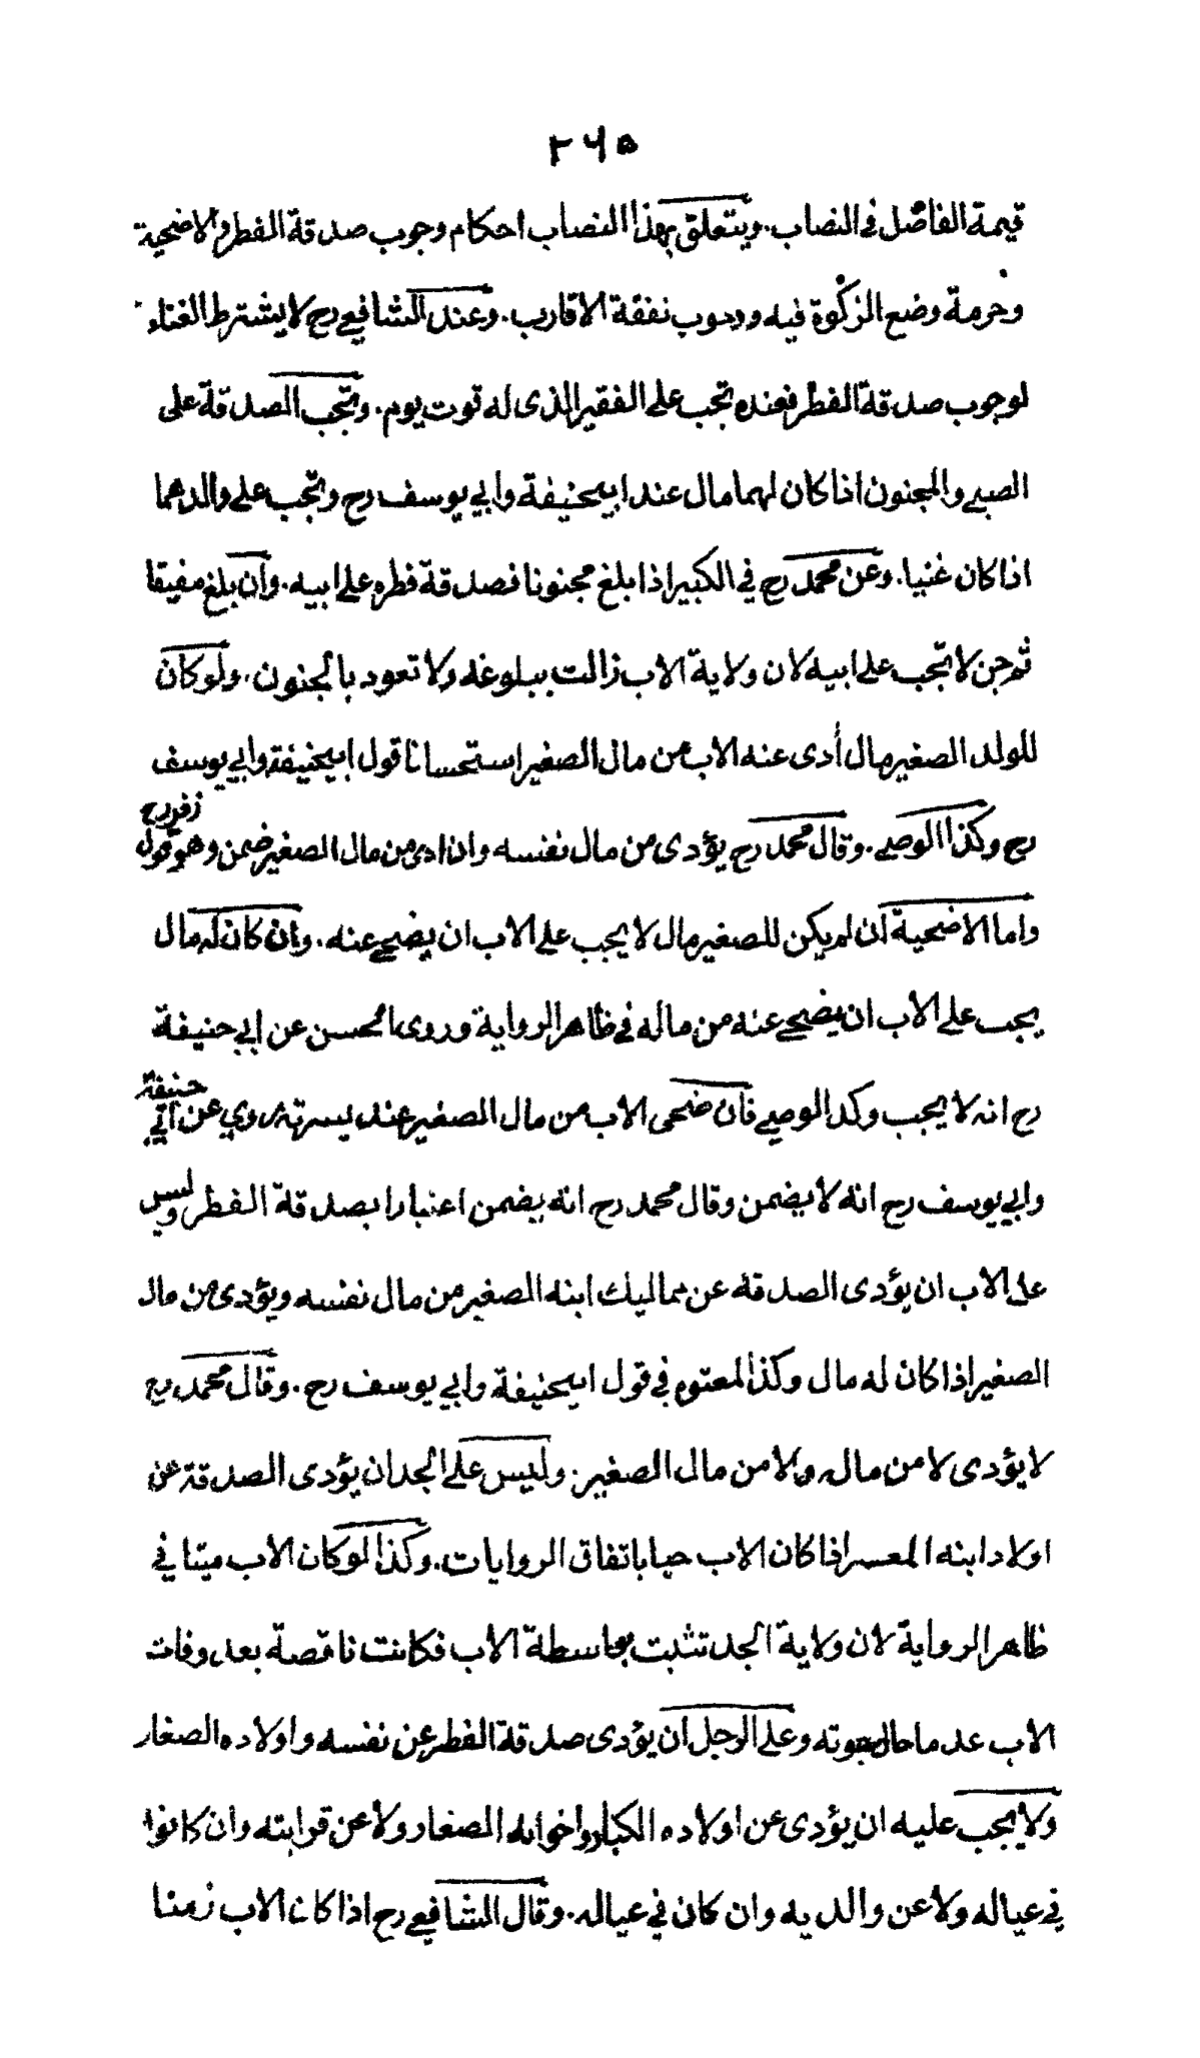 ٢٦٥
قيمة الفاضل في النصاب. ويتعلق بهذا النصاب احكام وجوب صدقة الفطر والاضحية
وحرمة وضع الزكوة فيه ووجوب نفقة الاقارب. وعند الشافعي رح لا يشترط الغناء
لوجوب صدقة الفطر فعنده تجب على الفقير الذى له قوت يوم. وتجب الصدقة على
الصبي والمجنون اذا كان لهما مال عند ابيحنيفة وابي يوسف رح وتجب على والدهما
اذا كان غنيا. وعن محمد رح في الكبير اذا بلغ مجنونا فصدقة فطره على ابيه. وان بلغ مفيقا
ثم جن لا تجب على ابيه لان ولاية الاب زالت ببلوغه ولا تعود بالجنون. ولو كان
للولد الصغير مال أدى عنه الاب من مال الصغير استحسانا قول ابيحنيفة وابي يوسف
رح وكذا الوصي. وقال محمد رح يؤدى من مال نفسه وان ادى من مال الصغير ضمن وهو قول زفر رح
واما الاضحية ان لم يكن للصغير مال لا يجب على الاب ان يضحي عنه. وان كان له مال
يجب على الاب ان يضحي عنه من ماله في ظاهر الرواية وروى الحسن عن ابي حنيفة
رح انه لا يجب وكذا الوصي فان ضحى الاب من مال الصغير عند يسرته روي عن ابي حنيفة
وابي يوسف رح انه لا يضمن وقال محمد رح انه يضمن اعتبارا بصدقة الفطر وليس
على الاب ان يؤدى الصدقة عن مماليك ابنه الصغير من مال نفسه ويؤدى من مال
الصغير اذا كان له مال وكذا المعتوه في قول ابيحنيفة وابي يوسف رح. وقال محمد رح
لا يؤدى لا من ماله ولا من مال الصغير. وليس على الجد ان يؤدى الصدقة عن
اولاد ابنه المعسر اذا كان الاب حيا باتفاق الروايات. وكذا لو كان الاب ميتا في
ظاهر الرواية لان ولاية الجد تثبت بواسطة الاب فكانت ناقصة بعد وفات
الاب عد ما حال موته وعلى الرجل ان يؤدى صدقة الفطر عن نفسه واولاده الصغار
ولا يجب عليه ان يؤدى عن اولاده الكبار واخوانه الصغار ولا عن قرابته وان كانوا
في عياله ولا عن والديه وان كان في عياله. وقال الشافعي رح اذا كان الاب زمنا